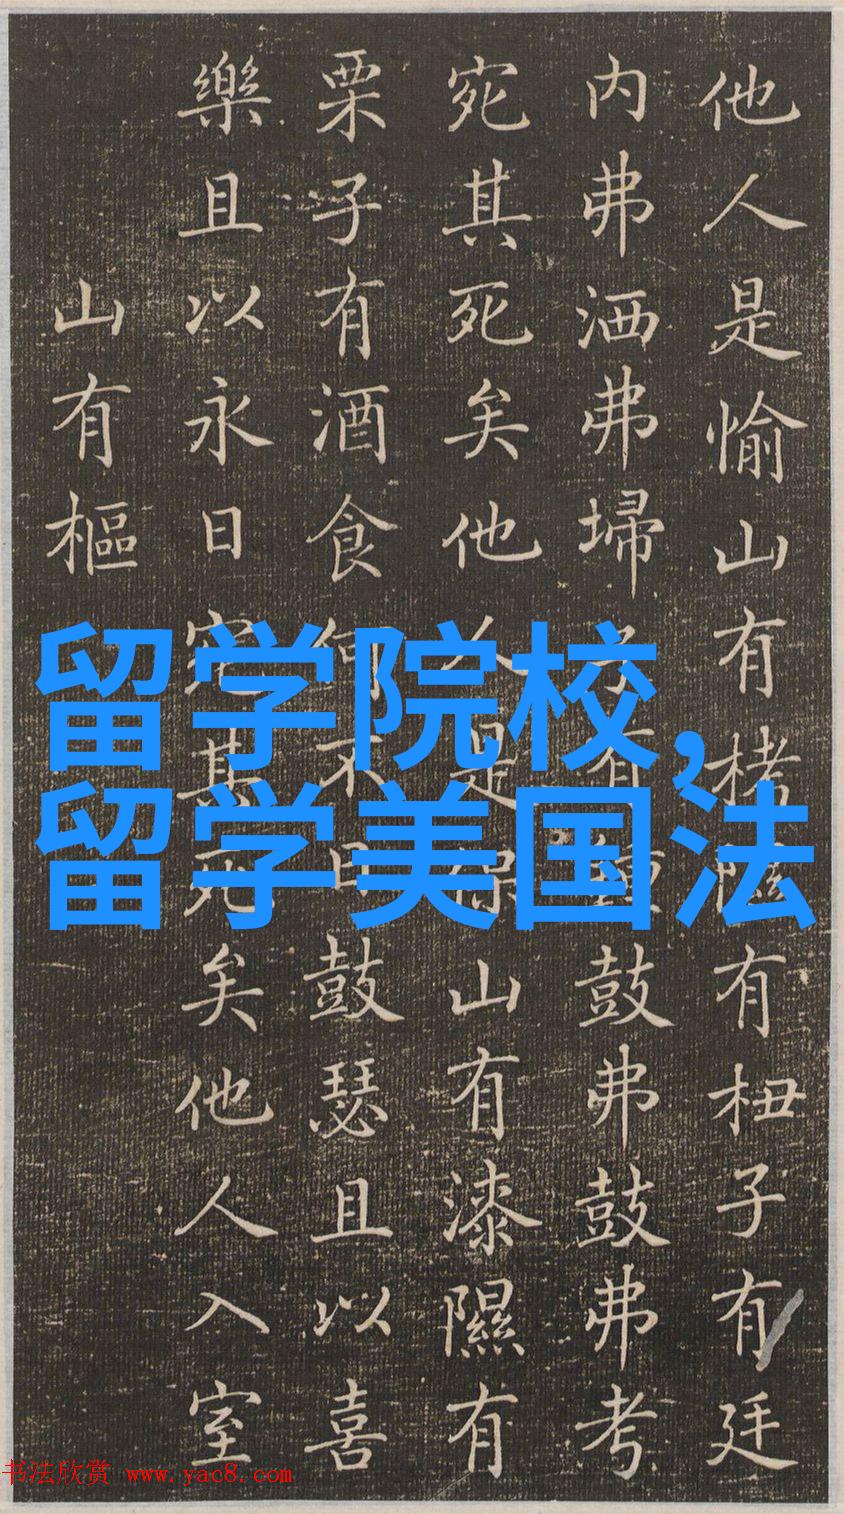 他人是愉山有栲隰有杻子有廷
内弗洒弗埽子有鍾鼓弗鼓弗考
宛其死矣他人是保山有漆隰有
栗子有酒食何不日鼓瑟且以喜
樂且以永日宛其死矣他人入室
山有樞
留学院校,
留学美国法
书法欣赏 www.yac8.com